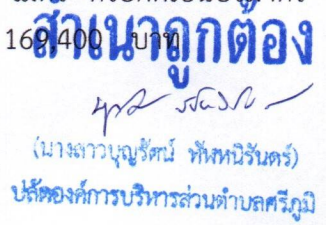 169,400 บาท
สำเนาถูกต้อง
(นางสาวบุญรัตน์ ทัพหนิรันดร์)
ปลัดองค์การบริหารส่วนตำบลศรีภูมิ